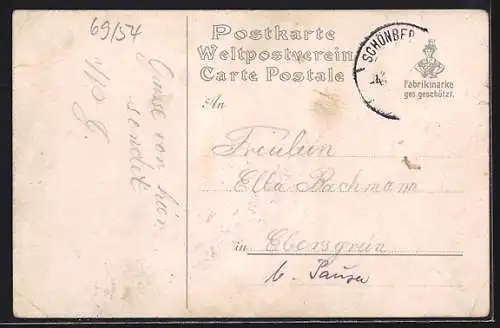 69/54
Postkarte
Weltpostverein
Carte Postale
SCHÖNBER
Fabrikmarke
ges. geschützt.
An
Grüsse von hier
sendet
Fräulein
Ella Bachmann
in Ebersgrün
b. Pausa